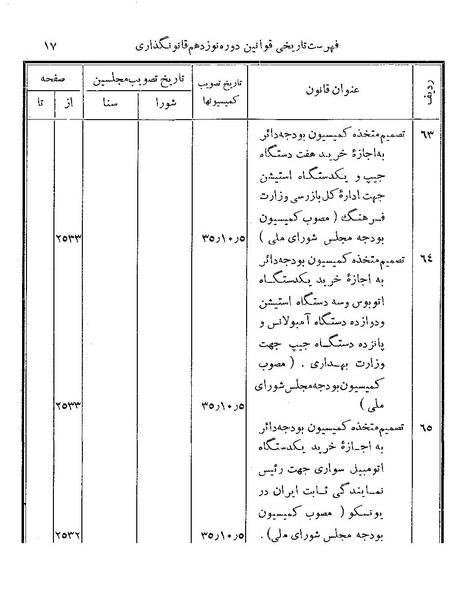 فهرست تاریخی قوانین دوره نوزدهم قانونگذاری ۱۷
ردیف عنوان قانون تاریخ تصویب کمیسیونها تاریخ تصویب مجلسین صفحه
شورا سنا از تا
۶۳ تصمیم متخذه کمیسیون بودجه دائر
به اجازهٔ خرید هفت دستگاه
جیپ و یکدستگاه استیشن
جهت ادارهٔ کل بازرسی وزارت
فرهنگ ( مصوب کمیسیون
بودجه مجلس شورای ملی ) ۳۵٫۱۰٫۵ ۲۵۳۳
۶۴ تصمیم متخذه کمیسیون بودجه دائر
به اجازه خرید یکدستگاه
اتوبوس وسه دستگاه استیشن
ودوازده دستگاه آمبولانس و
پانزده دستگاه جیپ جهت
وزارت بهداری . ( مصوب
کمیسیون بودجه مجلس شورای
ملی ) ۳۵٫۱۰٫۵ ۲۵۳۳
۶۵ تصمیم متخذه کمیسیون بودجه دائر
به اجازهٔ خرید یکدستگاه
اتومبیل سواری جهت رئیس
نمایندگی ثابت ایران در
یونسکو ( مصوب کمیسیون
بودجه مجلس شورای ملی ) . ۳۵٫۱۰٫۵ ۲۵۳۲